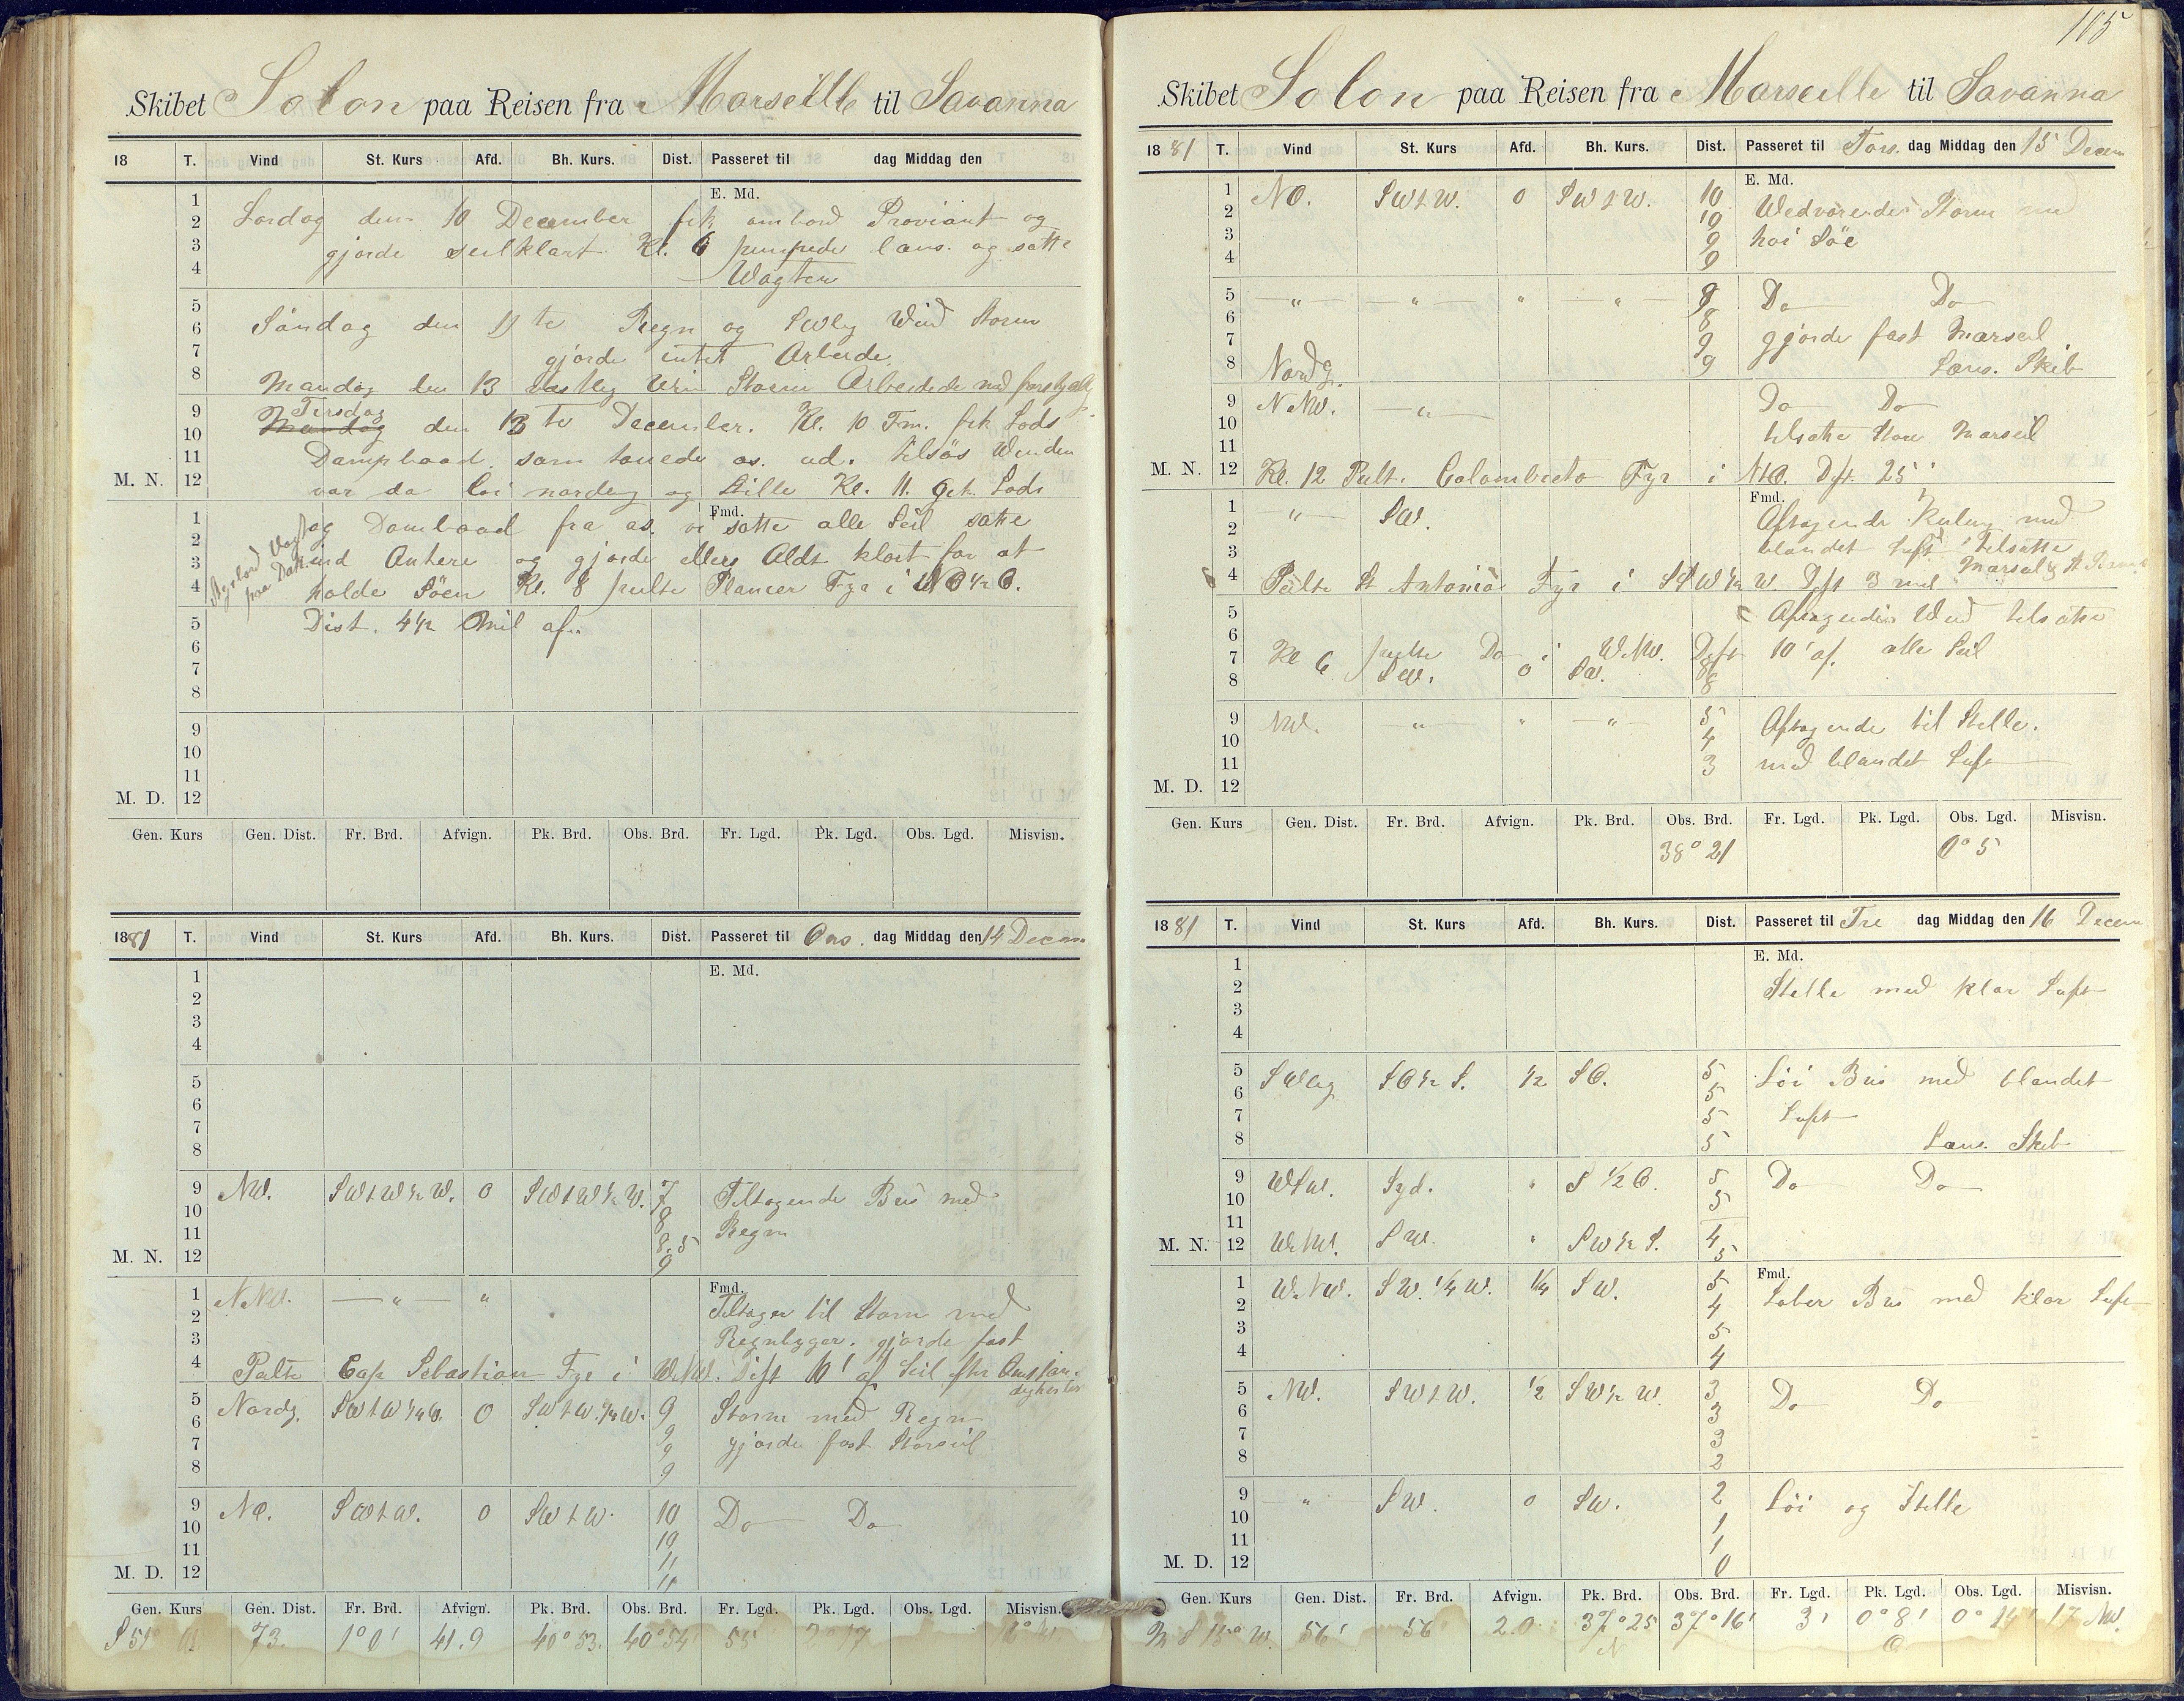 Skibet Solon paa Reisen fra Marseille til Savanna
18 T. Vind St. Kurs Afd. Bh. Kurs. Dist. Passeret til dag Middag den
E. Md.
1
2 Lørdag den 10 December fik ombord Proviant og
3 gjorde seilklart Kl. 6 pumpede læns. og satte
4 Vagten
5
6 Søndag den 11te Regn og SWlig Vind Storm
7 gjorde intet Arbeide
8 Mandag den 13 Storm Arbeidede med
9 Tirsdag
10 Mandag den 13te December. Kl. 10 Fm. fik Lods
11 Dampbaad. som touede os. ud. tilsøs Winden
M. N. 12 var da løi nordlig og Stille Kl. 11. gik Lods
Fmd.
1 og Dambaad fra os. vi satte alle Seil satte
2
3 ind Ankere og gjorde ellers Aldt klart for at
4 holde Søen Kl. 8 peilte Plancer Fyr i NO½O.
5 Dist. 4½ Mil af.
paa Dæk.
6
7
8
9
10
11
M. D. 12
Gen. Kurs Gen. Dist. Fr. Brd. Afvign. Pk. Brd. Obs. Brd. Fr. Lgd. Pk. Lgd. Obs. Lgd. Misvisn.
1881 T. Vind St. Kurs Afd. Bh. Kurs. Dist. Passeret til Ons. dag Middag den 14 Decem
E. Md.
1
2
3
4
5
6
7
8
9 NW. SWtW½W. 0 SWtW½W. 7 Tiltagende Bris med
10 8
11 8.5 Regn
M. N. 12 9
Fmd.
1 NNW. — " — " Tiltager til Storm med
2
3 Regnbyger. gjorde fast
4 Peilte Cap Sebastian Fyr i WNW. Dist 10' af Seil efter Omstændigheder
5 Nordg. SWtW¼W. 0 SWtW.¼W. 9 Storm med Regn
6 9
7 9 gjorde fast Storseil
8 9
9 NO. SWtW. 0 SWtW. 10 Do Do
10 10
11 11
M. D. 12 11
Gen. Kurs Gen. Dist. Fr. Brd. Afvign. Pk. Brd. Obs. Brd. Fr. Lgd. Pk. Lgd. Obs. Lgd. Misvisn.
S 51° 73. 1° 0' 41.9 40° 53. 40° 54' 55 2° 17
105
Skibet Solon paa Reisen fra Marseille til Savanna
1881 T. Vind St. Kurs Afd. Bh. Kurs. Dist. Passeret til Tors. dag Middag den 15 Decem
E. Md.
1 NO. SWtW. 0 SWtW. 10 Wedvarende Storm med
2 10
3 9 høi Söe
4 9
5 — " — — " — " — " — 9 Do Do
6 8
7 9 gjorde fast Marseil
8 Nordg. 9 Læns. Skib
9 NNW. — " — Do Do
10 tilsatte Store Marseil
11
M. N. 12 Kl. 12 Peilt. Colombreto Fyr i NtO. Dst. 25'
Fmd.
1 " SW. Aftagende Kuling med
2 blandet luft tilsatte
3 Marseil
4 Peilte St Antonio Fyr i SSW½W. Dst 3 mil
5 Aftagendes Wind tilsatte
6
7 Kl 6 peilte Do i WNW. Dst 10' af. alle Seil
8 SW. 0 SW. 8 8
9 NW. — " — " — " — 5 Aftagende til Stille.
10 4
11 3 med blandet Luft
M. D. 12
Gen. Kurs Gen. Dist. Fr. Brd. Afvign. Pk. Brd. Obs. Brd. Fr. Lgd. Pk. Lgd. Obs. Lgd. Misvisn.
38° 21 0° 5
1881 T. Vind St. Kurs Afd. Bh. Kurs. Dist. Passeret til Fre dag Middag den 16 Decem
E. Md.
1
2 Stille med klar Luft
3
4
5 SWlig SO½S. ½ SO. 5 Löi Bris med blandet
6 5
7 5 Luft
8 5 Læns. Skib
9 WSW. Syd. " S½O. 5 Do Do
10 5
11
M. N. 12 WNW. SW. " SW½S. 4 5
Fmd.
1 WNW. SW.¼W. ¼ SW. 5 Laber Bris med klar Luft
2 4
3 5
4 4
5 NW. SWtW. ½ SW½W. 3 Do Do
6 3
7 3
8 2
9 " SW. 0 SW. 2 Löi og Stille
10 1
11 1
M. D. 12 0
Gen. Kurs Gen. Dist. Fr. Brd. Afvign. Pk. Brd. Obs. Brd. Fr. Lgd. Pk. Lgd. Obs. Lgd. Misvisn.
S 15° W. 56' 56 2.0 37° 25 N 37° 16' 3' 0° 8' O 0° 14' 17 NW.